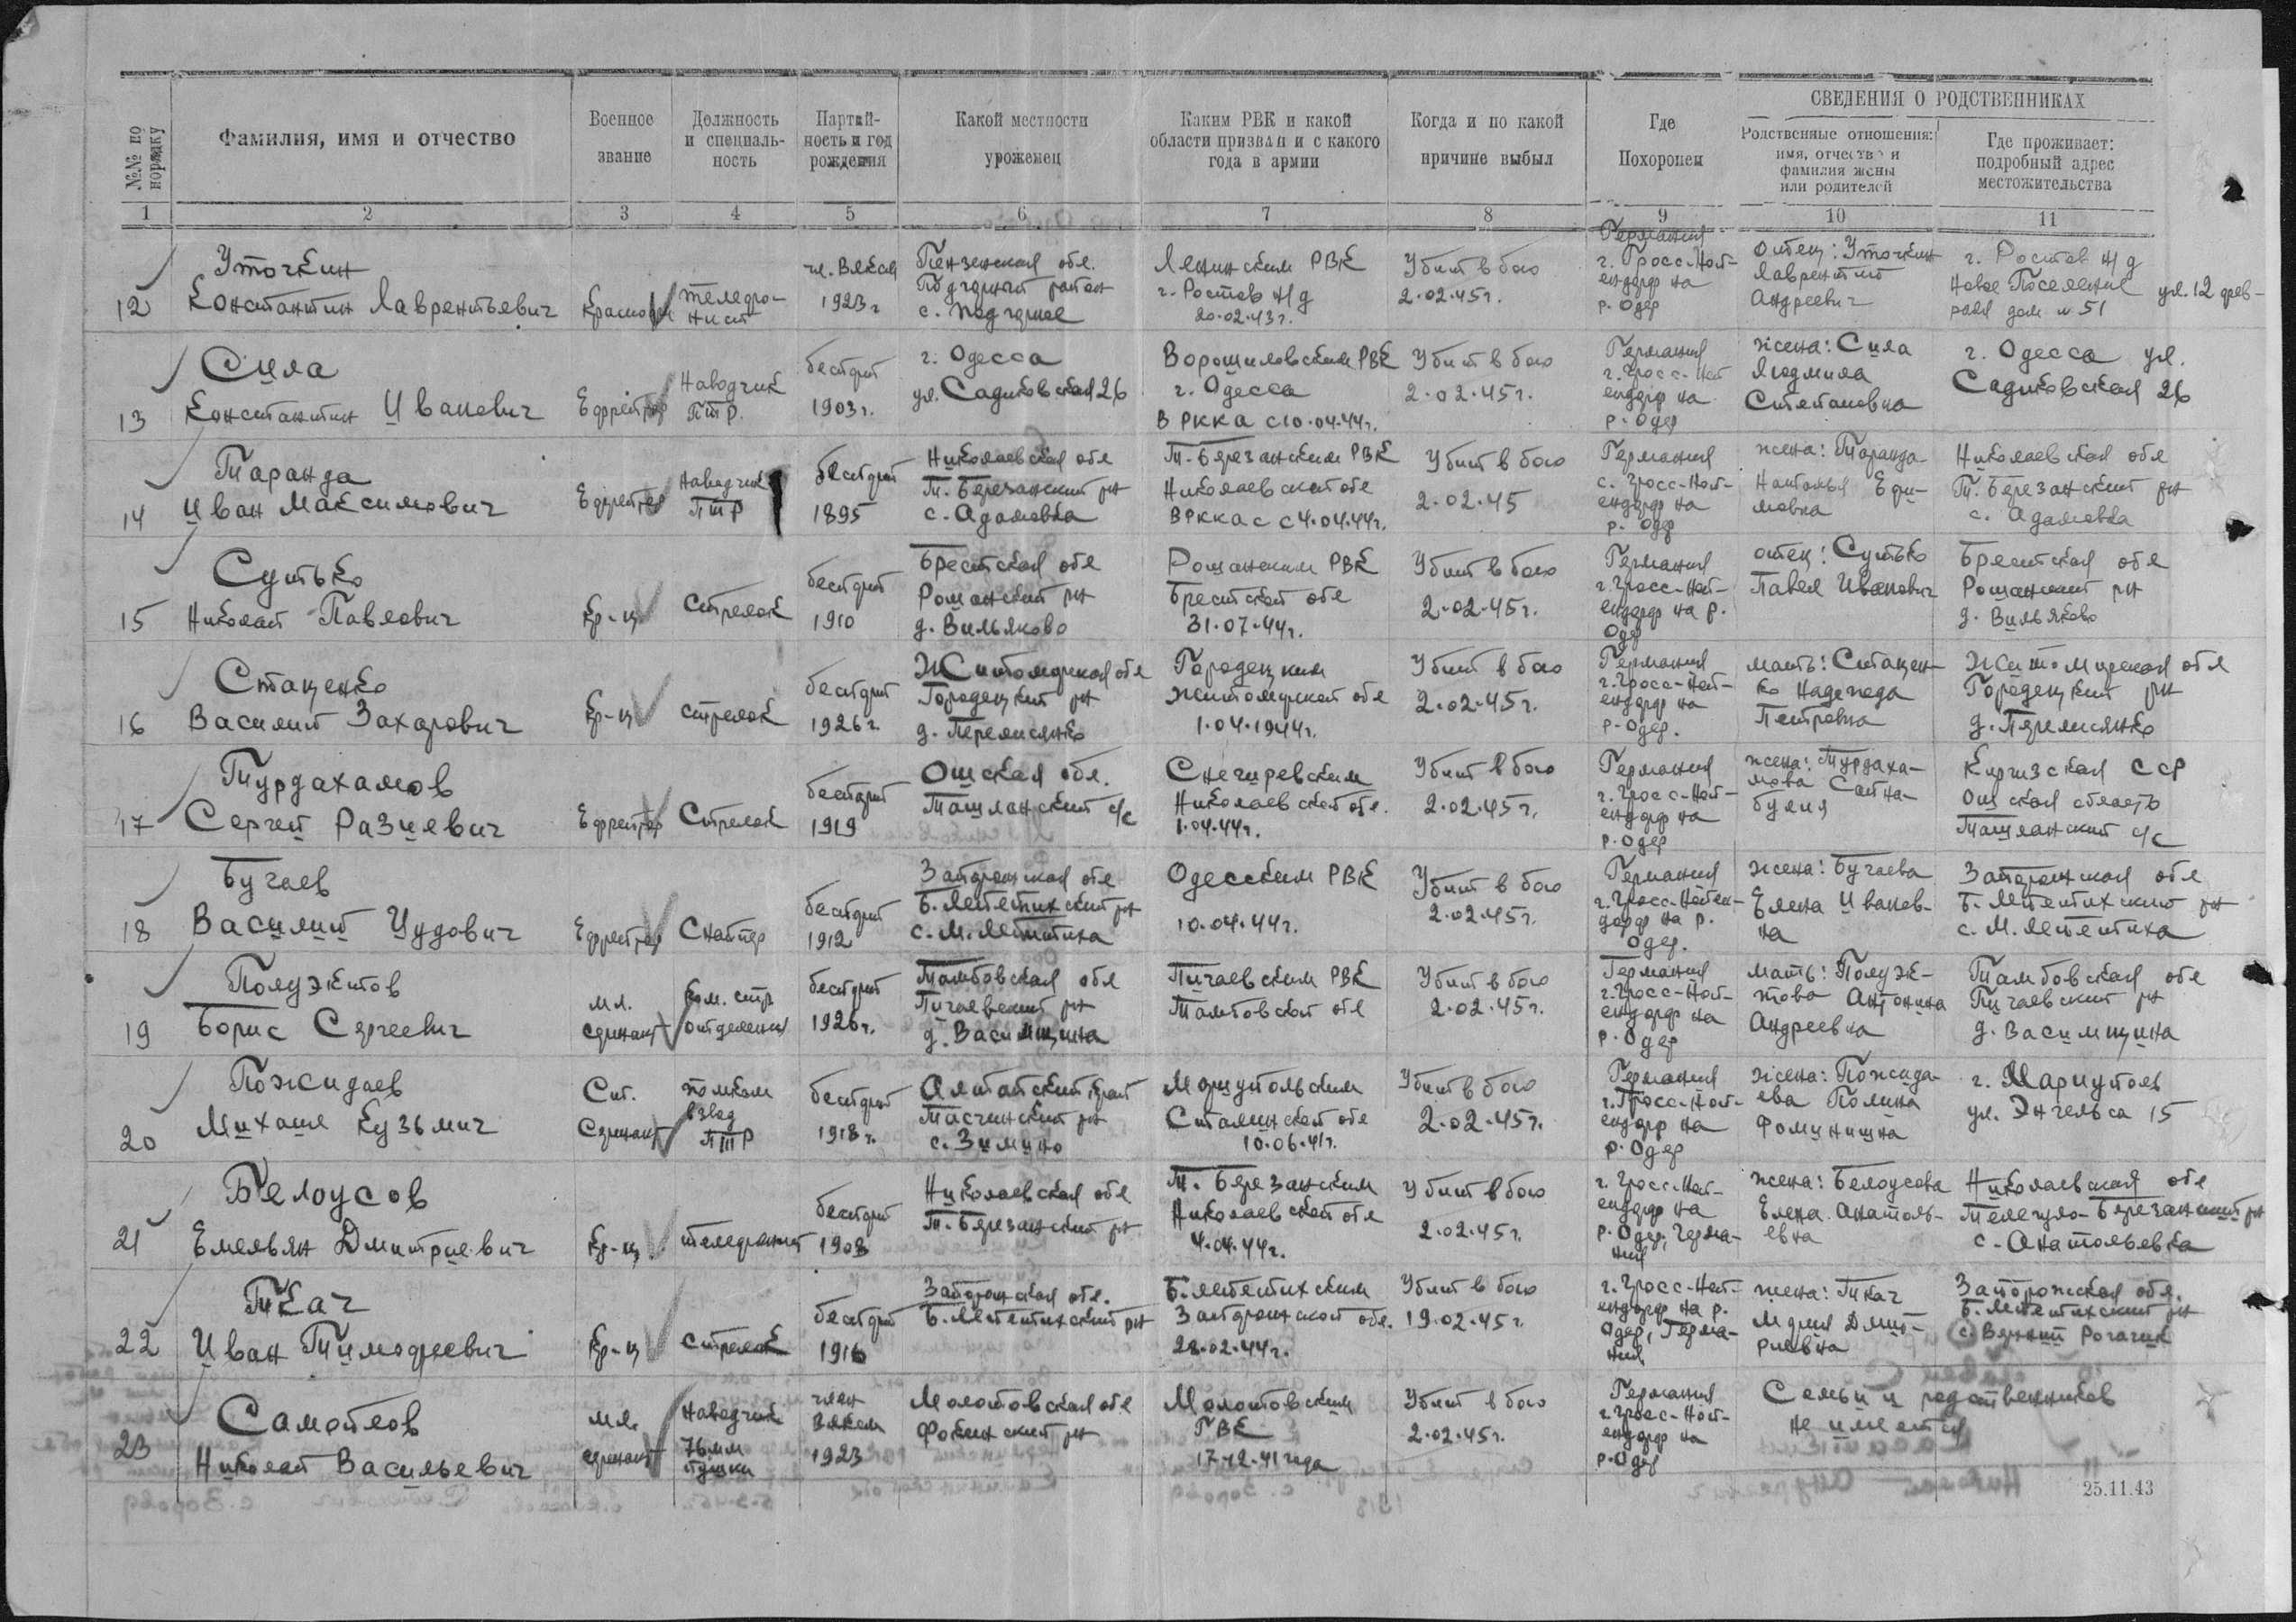 СВЕДЕНИЯ О РОДСТВЕННИКАХ
№№ по порядку
Фамилия, имя и отчество
Военное звание
Должность и специальность
Партийность и год рождения
Какой местности уроженец
Каким РВК и какой области призван и с какого года в армии
Когда и по какой причине выбыл
Где Похоронен
Родственные отношения: имя, отчество и фамилия жены или родителей
Где проживает: подробный адрес местожительства
1 2 3 4 5 6 7 8 9 10 11
12
Уточкин
Константин Лаврентьевич
телефонист
1923 г
Пензенская обл.
с. Подгорное
Ленинским РВК
г. Ростов н/д
20.02.43 г.
Убит в бою
2.02.45 г.
Германия
г. Гросс-Ней-
ендорф на
р. Одер
отец: Уточкин
Лаврентий
Андреевич
г. Ростов н/д
Новое Поселение ул. 12
дом № 51
13
Сила
Константин Иванович
Ефрейтор
Наводчик
ПТР.
беспарт
1903 г.
г. Одесса
ул. Садиковская 26
Ворошиловским РВК
г. Одесса
В РККА с 10.04.44 г.
Убит в бою
2.02.45 г.
Германия
г. Гросс-Ней
ендорф на
р. Одер
жена: Сила
Людмила
Степановна
г. Одесса ул.
Садиковская 26
14
Таранда
Иван Максимович
Ефрейтор
Наводчик
ПТР
беспарт
1895
Николаевская обл
Т. Березанский рн
с. Адамовка
Т. Березанским РВК
Николаевской обл
В РККА с с 4.04.44 г.
Убит в бою
2.02.45
Германия
с. Гросс-Ней-
ендорф на
р. Одер
жена: Таранда
Наталья Ефи-
мовна
Николаевская обл
Т. Березанский рн
с. Адамовка
15
Сутько
Николай Павлович
Кр-ц
Стрелок
беспарт
1910
Брестская обл
Рошанский рн
д. Вильяново
Рошанским РВК
Брестской обл
31.07.44 г.
Убит в бою
2.02.45 г.
Германия
г. Гросс-Ней-
ендорф на р.
Одер
отец: Сутько
Павел Иванович
Брестская обл
Рошанский рн
16
Стаценко
Василий Захарович
Кр-ц
стрелок
беспарт
1926 г.
Житомирская обл
Городецкий рн
Городецким
Житомирской обл
1.04.1944 г.
Убит в бою
2.02.45 г.
Германия
г. Гросс-Ней-
ендорф на
р. Одер.
мать: Стацен-
ко Надежда
Петровна
Житомирская обл
Городецкий рн
17
Турдахамов
Сергей Разиевич
Ефрейтор
Стрелок
беспарт
1919
Ошская обл.
Ташланский с/с
Снегиревским
Николаевской обл.
1.04.44 г.
Убит в бою
2.02.45 г.
Германия
г. Гросс-Ней-
ендорф на
р. Одер
жена: Турдаха-
мова
Киргизская ССР
Ошская область
Ташланский с/с
18
Бугаев
Василий Иудович
Ефрейтор
Снайпер
беспарт
1912
Запорожская обл
Б. Лепетихский рн
с. М. Лепетиха
Одесским РВК
10.04.44 г.
Убит в бою
2.02.45 г.
Германия
г. Гросс-Нейен-
дорф на р.
Одер.
жена: Бугаева
Елена Иванов-
на
Запорожская обл
Б. Лепетихский рн
с. М. Лепетиха
19
Полуэктов
Борис Сергеевич
мл.
сержант
Ком. стр.
отделения
беспарт
1926 г.
Тамбовская обл
Пичаевский рн
д. Васильщина
Пичаевским РВК
Тамбовской обл
Убит в бою
2.02.45 г.
Германия
г. Гросс-Ней-
ендорф на
р. Одер
мать: Полуэк-
това Антонина
Андреевна
Тамбовская обл
Пичаевский рн
д. Васильщина
20
Пожидаев
Михаил Кузьмич
Ст.
Сержант
помком
взвод
ПТР
беспарт
1918 г.
Алтайский край
с. Зимино
Мариупольским
Сталинской обл
10.06.41 г.
Убит в бою
2.02.45 г.
Германия
г. Гросс-Ней-
ендорф на
р. Одер
жена: Пожида-
ева Полина
Фоминишна
г. Мариуполь
ул. Энгельса 15
21
Белоусов
Емельян Дмитриевич
Кр-ц.
телефонист
беспарт
Николаевская обл
Т. Березанский рн
Т. Березанским
Николаевской обл
4.04.44 г.
Убит в бою
2.02.45 г.
г. Гросс-Ней-
ендорф на
р. Одер, Герма-
ния
жена: Белоусова
Елена Анатоль-
евна
Николаевская обл
Телегуло-Березанский рн
с. Анатольевка
22
Ткач
Иван Тимофеевич
Кр-ц
стрелок
беспарт
1916
Запорожская обл.
Б. Лепетихский рн
Б. Лепетихским
Запорожской обл.
28.02.44 г.
Убит в бою
19.02.45 г.
г. Гросс-Ней-
ендорф на р.
Одер, Герма-
ния
жена: Ткач
Мария Дмит-
риевна
Запорожская обл.
Б. Лепетихский рн
Рогачик
23
Самойлов
Николай Васильевич
мл.
сержант
Наводчик
76 мм
пушки
член
ВЛКСМ
1923
Молотовская обл
Молотовским
ГВК
17.12.41 года
Убит в бою
2.02.45 г.
Германия
г. Гросс-Ней-
ендорф на
р. Одер
Семьи и родственников
не имеется
25.11.43